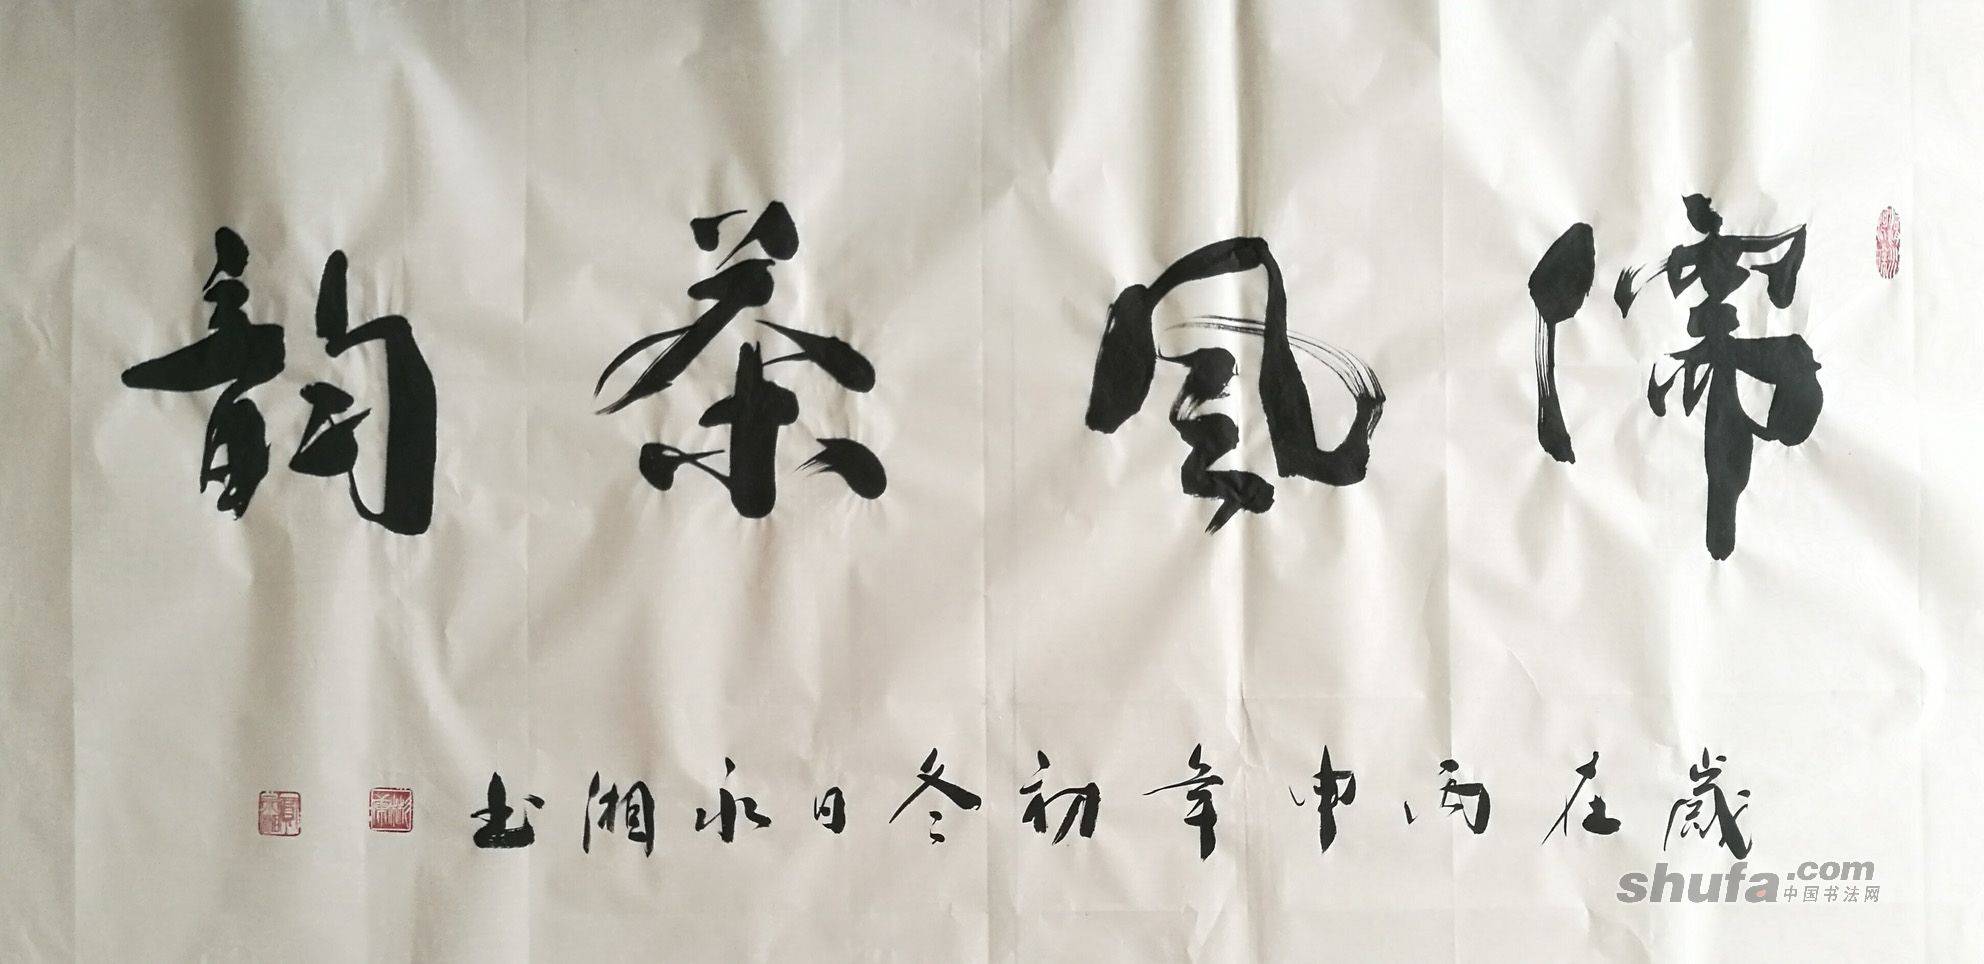 儒風茶韵
歲在丙申年初冬日永湘书
shufa.com
中国书法网